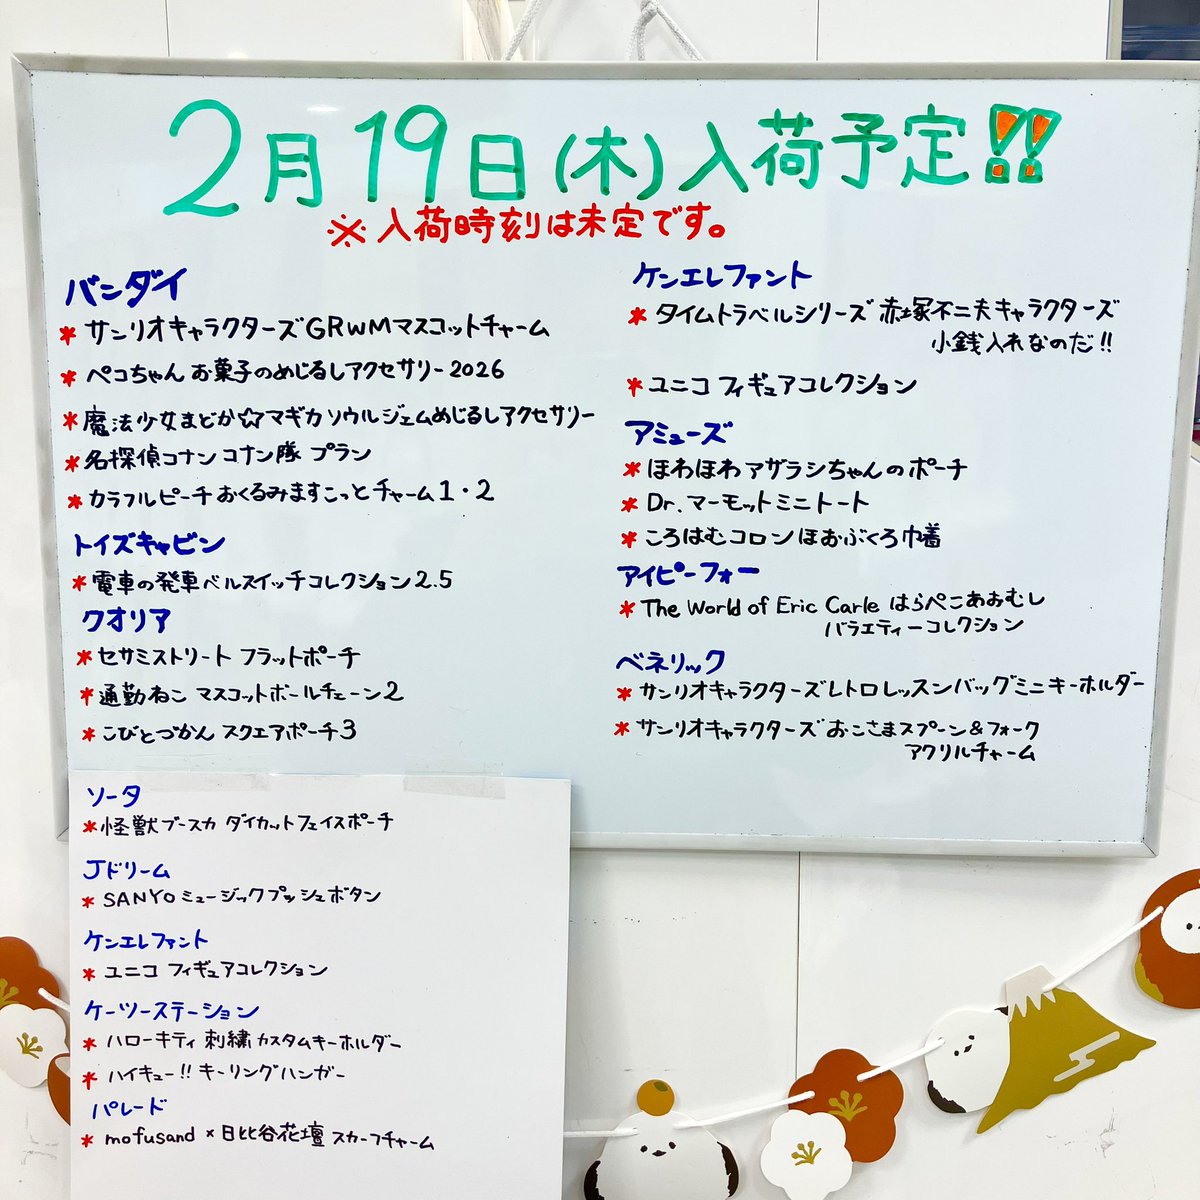 2月19日(木)入荷予定!!
※入荷時刻は未定です。
バンダイ
* サンリオキャラクターズGRWMマスコットチャーム
* ペコちゃん お菓子のめじるしアクセサリー2026
* 魔法少女まどか☆マギカ ソウルジェムめじるしアクセサリー
* 名探偵コナン コナン隊 プラン
* カラフルピーチ おくるみますこっとチャーム1・2
トイズキャビン
* 電車の発車ベルスイッチコレクション2.5
クオリア
* セサミストリート フラットポーチ
* 通勤ねこ マスコットボールチェーン2
* こびとづかん スクエアポーチ3
ケンエレファント
* タイムトラベルシリーズ 赤塚不二夫キャラクターズ
小銭入れなのだ!!
* ユニコ フィギュアコレクション
アミューズ
* ほわほわアザラシちゃんのポーチ
* Dr.マーモットミニトート
* ころはむコロン ほおぶくろ巾着
アイピーフォー
* The World of Eric Carle はらぺこあおむし
バラエティーコレクション
ベネリック
* サンリオキャラクターズレトロレッスンバッグミニキーホルダー
* サンリオキャラクターズおこさまスプーン&フォーク
アクリルチャーム
ソータ
* 怪獣ブースカ ダイカットフェイスポーチ
Jドリーム
* SANYOミュージックプッシュボタン
ケンエレファント
* ユニコ フィギュアコレクション
ケーツーステーション
* ハローキティ 刺繍カスタムキーホルダー
* ハイキュー!! キーリングハンガー
パレード
* mofusand×日比谷花壇 スカーフチャーム